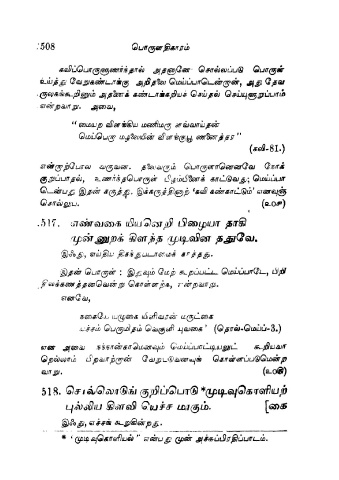 508 பொருளதிகாரம்
கவிப்பொருளுணர்ந்தால் அதனானே சொல்லப்படு பொருள்
உய்த்து வேறுகண்டாங்கு அறிதலை மெய்ப்பாடென்றான், அது தேவ
ருலகங்கூறினும் அதனைக் கண்டாங்கறியச் செய்தல் செய்யுளுறுப்பாம்
என்றவாறு. அவை,
“ மையற விளங்கிய மணிமரு ளவ்வாய்தன்
மெய்பெறு மழலையின் விளங்குபூ ணனைத்தர ”
(கலி-81.)
என்றாற்போல வருவன. தலைவரும் பொருளானெனவே நோக்
குறுப்பாதல், உணர்ந்தபொருள் பிழம்பினைக் காட்டுவது; மெய்ப்பா
டென்பது இதன் கருத்து. இக்கருத்தினாற் ‘கவி கண்காட்டும்’ எனவுஞ்
சொல்லுப. (உ௦௪)
517. எண்வகை யியனெறி பிழையா தாகி
முன்னுறக் கிளந்த முடிவின ததுவே.
இஃது, எய்திய திகந்துபடாமைக் காத்தது.
இதன் பொருள் : இதுவும் மேற் கூறப்பட்ட மெய்ப்பாடே, பிறி
திலக்கணத்தனவென்று கொள்ளற்க, என்றவாறு.
எனவே,
நகையே யழுகை யிளிவரன் மருட்கை
யச்சம் பெருமிதம் வெகுளி யுவகை’ (தொல்-மெய்ப்-3.)
என அவை நந்நான்காமெனவும் மெய்ப்பாட்டியலுட் கூறியவா
றெல்லாம் பிறவாற்றான் வேறுபடுவனவுங் கொள்ளப்படுமென்ற
வாறு. (உ௦௫)
518. சொல்லொடுங் குறிப்பொடு *முடிவுகொளியற்
புல்லிய கிளவி யெச்ச மாகும். [கை
இஃது, எச்சங் கூறுகின்றது.
* ‘முடிவுகொளியல்” என்பது முன் அச்சுப்பிரதிப்பாடம்.